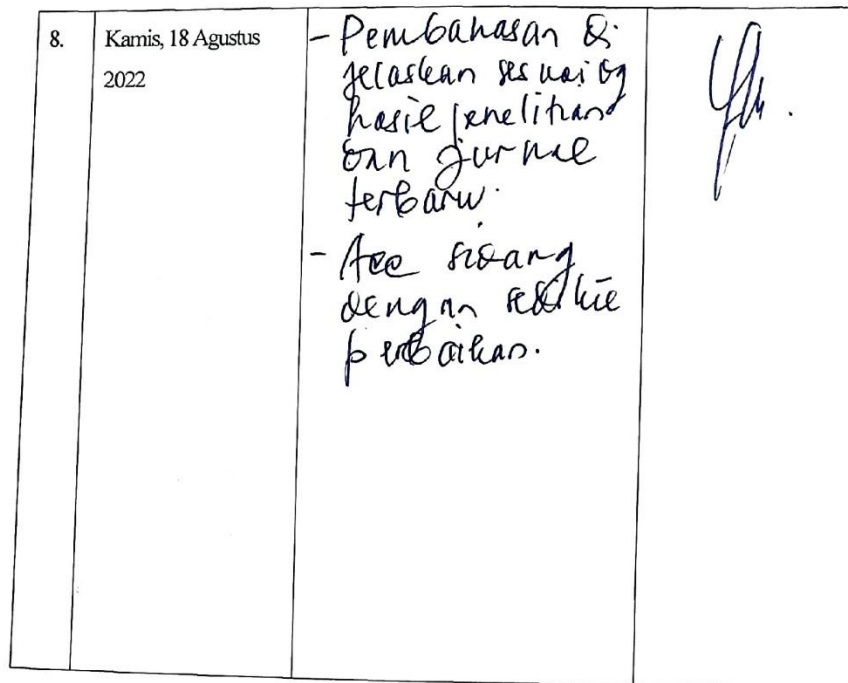 8.
Kamis, 18 Agustus
2022
- Pembahasan di
jelaskan sesuai dg
hasil penelitian
dan jurnal
terbaru.
- Acc sidang
dengan sedikit
perbaikan.